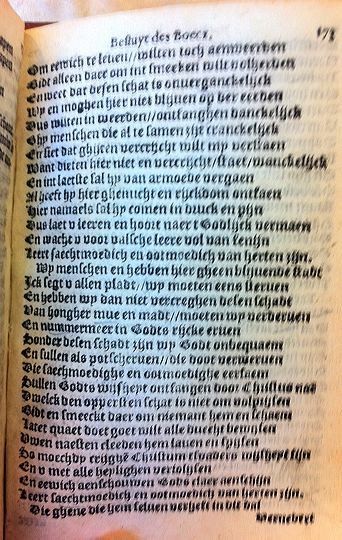 Besluyt des Boecx. 173
Om eewich te leven//wilten toch aenweerden
Bidt alleen daer om int smeeken wilt volherden
En weet dat desen schat is onverganckelijck
Wy en moghen hier niet blijven op der eerden
Dus wilten in weerden//ontfanghen danckelijck
Ghy menschen die al te samen zijt cranckelijck
En siet dat ghijten vercrijcht wilt my verstaen
Want dieten hier niet en vercrijcht/staet/wanckelijck
En int laetste sal hy van armoede vergaen
Al heeft hy hier ghenucht en rijckdom ontfaen
Hier namaels sal hy comen in druck en pijn
Dus laet u leeren en hoort naer t Godlijck vermaen
En wacht u voor valsche leere vol van fenijn
Leert saechtmoedich en ootmoedich van herten zijn.
Wy menschen en hebben hier gheen blijvende stadt
Ick segt u allen pladt//wy moeten eens sterven
En hebben wy dan niet vercreghen desen schadt
Van hongher mue en madt//moeten wy verderven
En nummermeer in Godts rijcke erven
Sonder desen schadt zijn wy Godt onbequaem
En sullen als potscherven//die door verwerven
Die saechmoedighe en ootmoedighe eersaem
Sullen Godts wijsheyt ontfangen door Christus
Dwelck den oppersten schat is niet om volprijsen
Bidt en smeeckt daer om niemant hem en schaem
Laet quaet doet goet wilt alle duecht bewijsen
Uwen naesten cleeden hem laven en spijsen
So moechdy crijghen Christum tsvaders wijsheyt fijn
En u met alle heylighen verjolijsen
En eewich aenschouwen Gods claer aenschijn
Leert saechtmoedich en ootmoedich van herten zijn.
Die ghene die hem selven verheft in dit dal
Vernedert